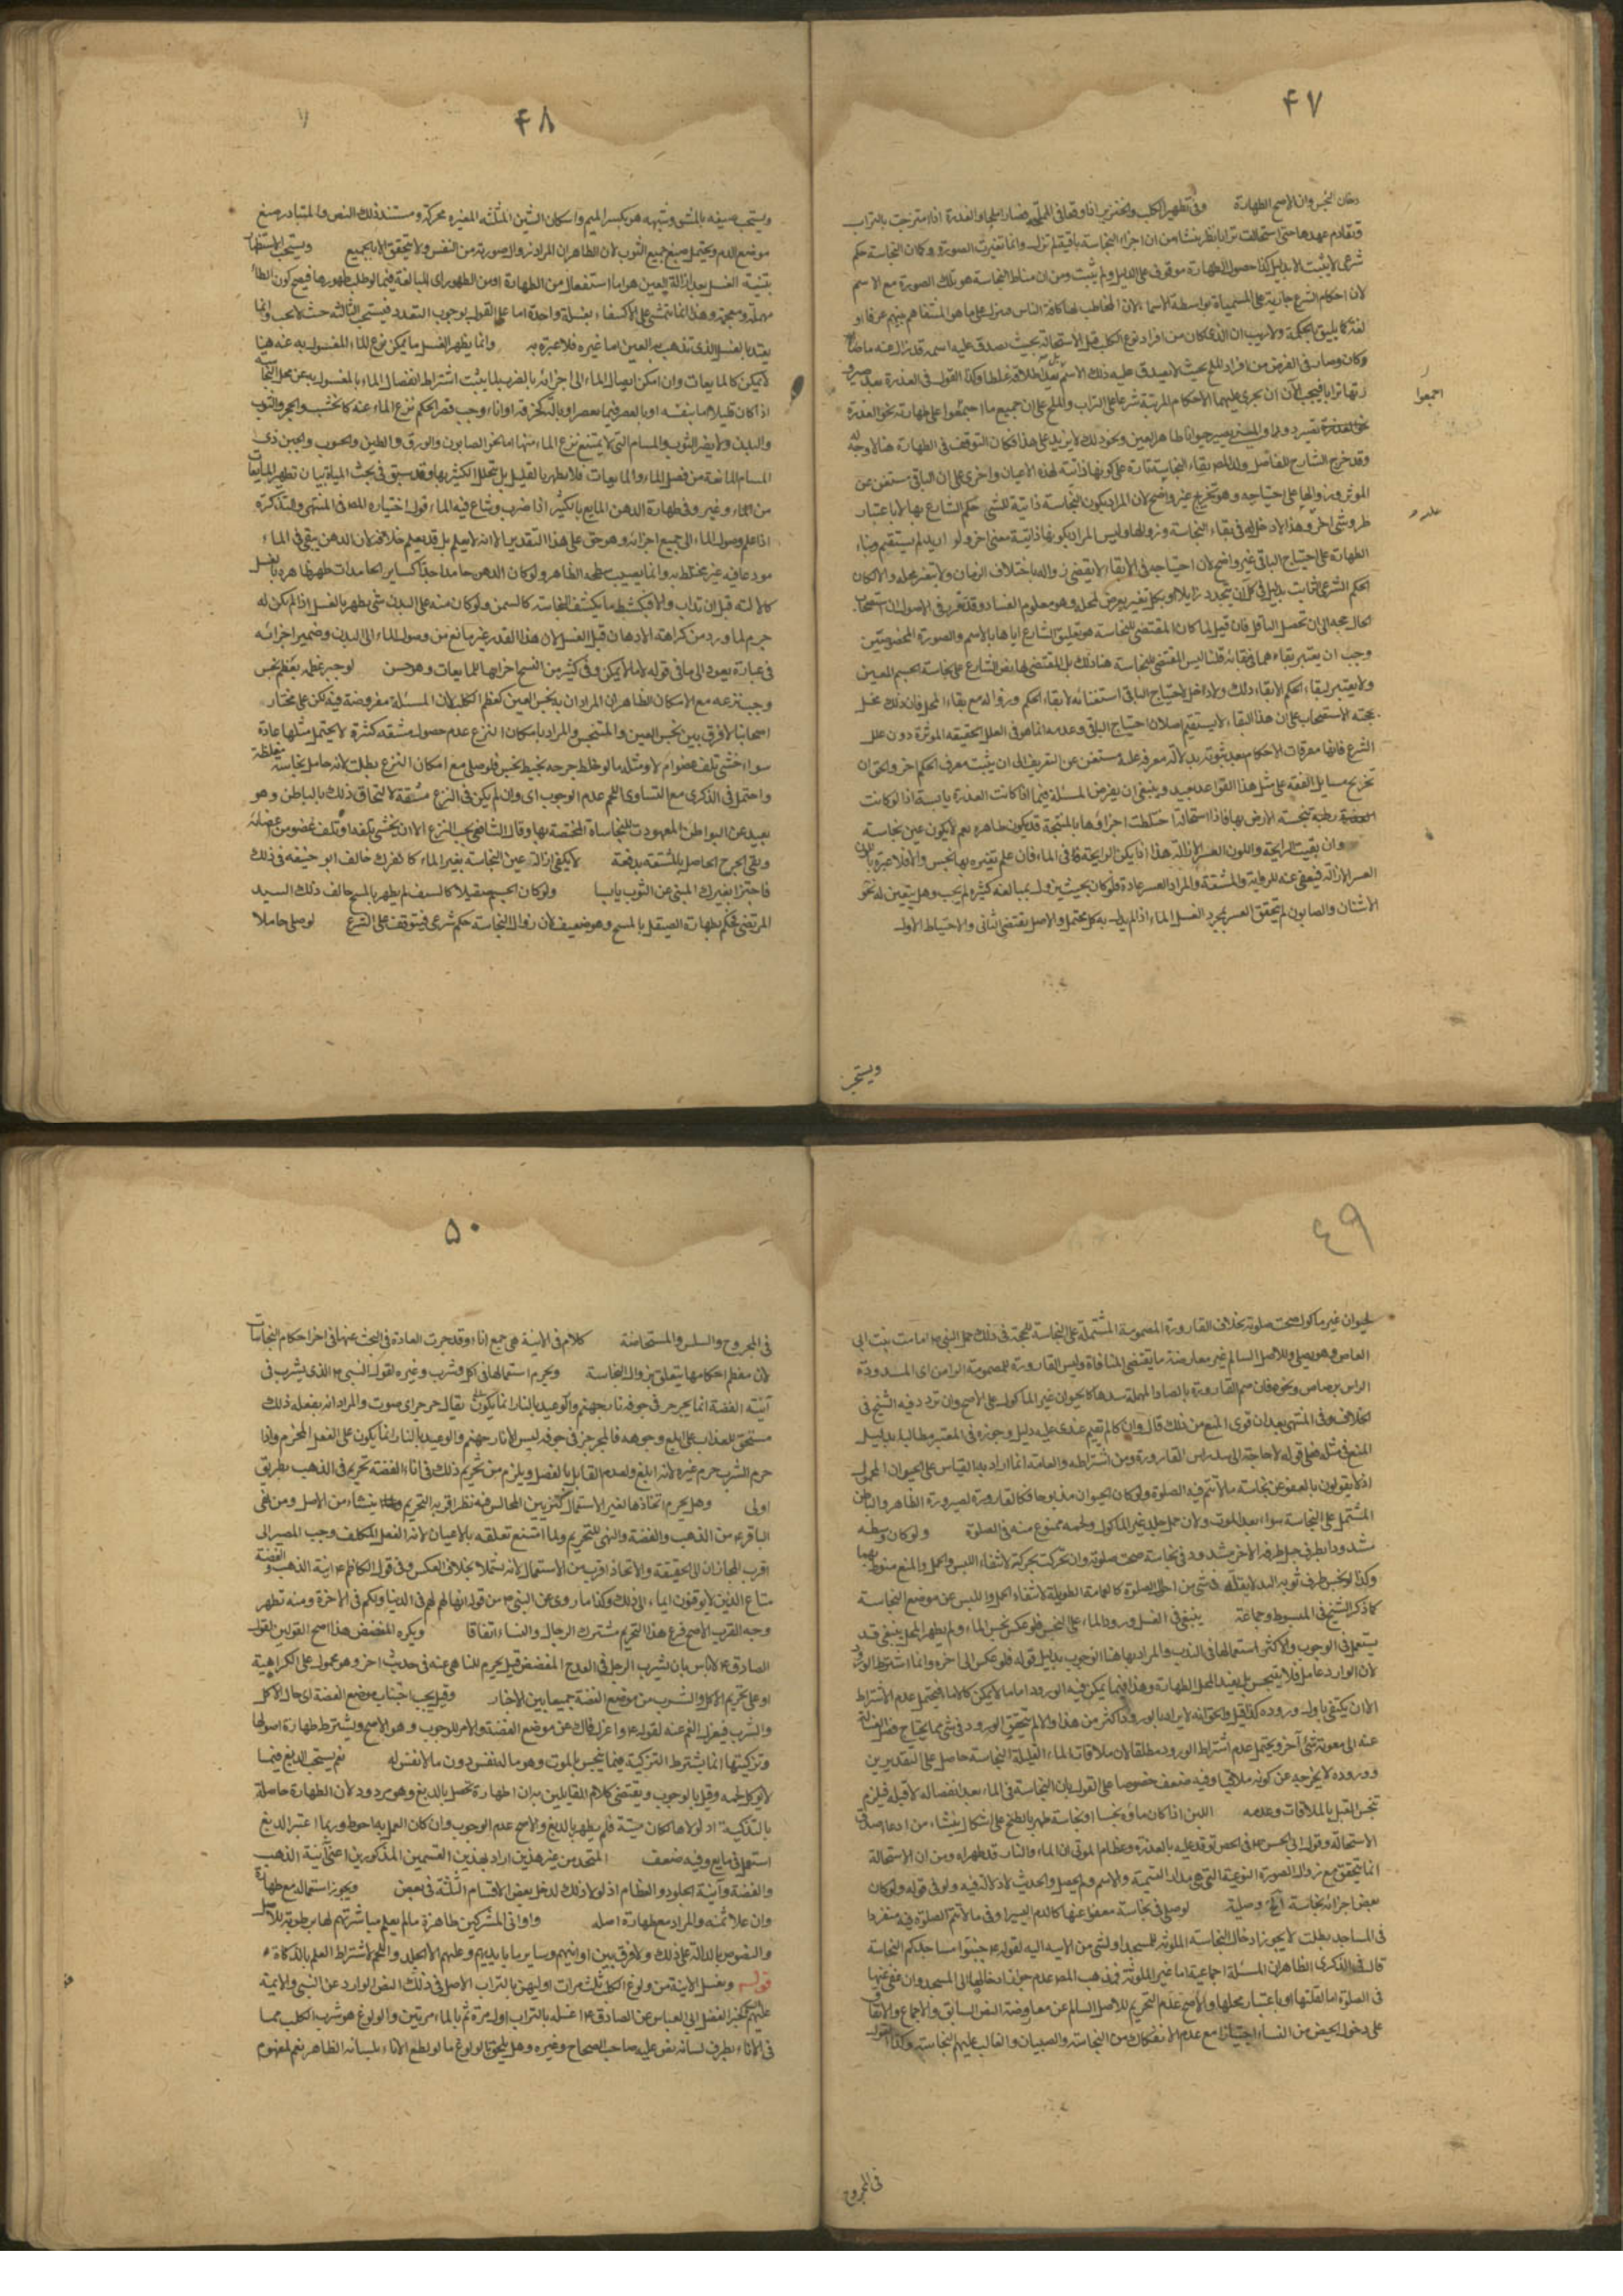 ۴۷
دخان النجس وان الاصح الطهارة وفي تطهير الكلب والخنزير اذا وقعا في المملحة فصارا ملحا والعذرة اذا امتزجت بالتراب
وتقادم عهدها حتى استحالت ترابا نظر ينشا من ان اجزاء النجاسة باقية لم تزل وانما تغيرت الصورة وكان النجاسة حكم
شرعي لا يثبت الا بدليل كذا حصول الطهارة موقوف على الدليل ولم يثبت ومن ان مناط النجاسة هو تلك الصورة مع الاسم
لان احكام الشرع جارية على المسميات بواسطة الاسماء لان المخاطب بها كافة الناس فينزل على ما هو المتفاهم بينهم عرفا او
لغة كما يليق بالحكمة ولا ريب ان الذي كان من افراد نوع الكلب قبل الاستحالة بحيث يصدق عليه اسمه قد زال عنه
وكان وصار في الفرض من افراد الملح بحيث لا يصدق عليه ذلك الاسم بل يعد اطلاقه غلطا وكذا القول في العذرة بعد صيرو
رتها ترابا فيجب الآن ان يجري عليهما الاحكام المرتبة شرعا على التراب والملح على ان جميع ما اجتمعوا على طهارته نحو العذرة
تصير دودا والمني يصير حيوانا طاهر العين ونحو ذلك لا يزيد على هذا فكان التوقف في الطهارة هنا لا وجه له
وقد خرج الشارح الفاضل ولد المصر بقاء النجاسة تارة على كونها ذاتية لهذه الاعيان واخرى على ان الباقي مستغن عن
الموثر وزوالها على احتياجه وهو تخريج غير واضح لان المراد بكون النجاسة ذاتية للشيء حكم الشارع بها لا باعتبار
طرو شيء اخر وهذا لا دخل له في بقاء النجاسة وزوالها وليس المراد بكونها ذاتية معنى اخر ولو اريد لم يستقم وبناء
الطهارة على احتياج الباقي غير واضح لان احتياجه في الابقاء لا يقتضي زواله باختلاف الزمان ولا بتغير محله والا لكان
الحكم الشرعي الثابت بدليل في كل آن يتجدد زايلا او بكل تغير يعرض لمحله وهو معلوم الفساد وقد تقرر في الاصول ان استصحاب
الحال حجة الى ان يحصل الناقل فان قيل لما كان المقتضي للنجاسة هو تعليق الشارع اياها بالاسم والصورة المخصوصتين
وجب ان يعتبر بقاءهما في بقائه قلنا ليس المقتضي للنجاسة هنا ذلك بل المقتضي لها نص الشارع على نجاسة الجسم المعين
ولا يعتبر لبقاء الحكم الا بقاء ذلك ولا دخل لاحتياج الباقي استغنائه لا بقاء الحكم وزواله مع بقاء المحل فان ذلك مخل
بحجته الاستصحاب على ان هذا البقاء لا يستقيم اصلا لان احتياج الباقي وعدمه انما هو في العلل الحقيقية الموثرة دون علل
الشرع فانها معرفات للاحكام
تخريج مسايل الفقه على مثل هذا القواعد بعيد وينبغي ان يفرض المسئلة فيما اذا كانت العذرة يابسة اذا لو كانت
رطبة نجست الارض بها فاذا استحالت اختلطت اجزاؤها بالمتنجسة قد يكون طاهرة نعم لا يكون عين نجاسة
وان بقيت الرايحة واللون العسر الازالة هذا اذا لم يكن الرايحة في الماء فان علم تغيره بها نجس والا فلا عبرة
العسر الازالة فيعفى عنه للرواية والمشقة والمراد العسر عادة فلو كان بحيث يزول بمبالغة كثيرة لم يجب وهل يتعين له نحو
الاشنان والصابون لم يتحقق العسر بمجرد الغسل الماء اذا لم يزل به كل محتمل والاصل يقتضي الثاني والاحتياط الاول
اجمعوا
ويستحب
۴۸
ويستحب صبغه بالمشق وشبهه هو بكسر الميم واسكان الشين المثلثه المغره محركة ومستند ذلك النص والمتبادر صبغ
موضع الدم ويحتمل صبغ جميع الثوب لان الظاهر ان المراد زوال صورته من النفس ولا يتحقق الا بالجميع ويستحب الاستظهار
بتثنية الغسل بعد ازالة العين هو اما استفعال من الطهارة او من الظهور اي المبالغة فيها
مهملة ومعجمة وهذا انما يتمشى على الاكتفاء بغسلة واحدة اما على القول بوجوب التعدد فيستحب الثالثة حيث لا يجب وانما
يعتد بالغسل الذي تذهب به العين اما غيره فلا عبرة به وانما يطهر الغسل ما يمكن نزع الماء المغسول به عنه هنا
لا يمكن كالمايعات وان امكن ايصال الماء الى اجزائه بالضرب لما يثبت اشتراط انفصال الماء المغسول به عن محل النجاسة
اذا كان قليلا اما بنفسه او بالعصر فيما يعصر او بآلة كخرقة او اناء وجب قصر الحكم بنزع الماء عنه كالخشب والحجر والثوب
والبدن ولا يضر الثوب والمسام التي لا يمتنع نزع الماء منها اما نحو الصابون والورق والطين والحبوب والجبن ذي
المسام المانعة من فصل الماء والمايعات فلا يطهر بالقليل بل يتخلل الكثير بها وقد سبق في بحث المياه بيان تطهير المايعات
من الماء وغيره وفي طهارة الدهن المايع بالكثير اذا ضرب وشاع فيه الماء قول اختياره المصر في المنتهى والتذكرة
اذا علم وصول الماء الى جميع اجزائه وهو حق على هذا التقدير الا انه لا يعلم بل قد يعلم خلافه لان الدهن يبقى في الماء
مودعا فيه غير مختلط به وانما يصيب سطحه الظاهر ولو كان الدهن جامدا جدا كساير الجامدات طهر ظاهره بالغسل
كالالية قبل ان تذاب والا فيكشط ما يكشف النجاسة كالسمن ولو كان منه على البدن شيء يطهر بالغسل اذا لم يكن له
جرم لما ورد من كراهة الادهان قبل الغسل لان هذا القدر غير مانع من وصول الماء الى البدن وضمير اجزائه
في عبارة يعود الى ما في قوله لا ما لا يمكن وفي كثير من النسخ اجزاءها للمايعات وهو حسن لو جبر عظمه بعظم نجس
وجب نزعه مع الامكان الظاهر ان المراد به نجس العين كعظم الكلب لان المسئلة مفروضة فيه لكن على مختار
اصحابنا لا فرق بين نجس العين والمتنجس والمراد بامكان النزع عدم حصول مشقة كثيرة لا يحتمل مثلها عادة
سواء خشي تلف عضو ام لا ومثله ما لو خاط جرحه بخيط نجس فلو صلى مع امكان النزع بطلت لانه حامل نجاسة مغلظة
واحتمل في الذكرى مع التساوي اللحم عدم الوجوب اي وان لم يكن في النزع مشقة لالتحاق ذلك بالباطن وهو
بعيد عن البواطن المعهودة للنجاسات المختصة بها وقال الشافعي يجب النزع الا ان يخشى تلفه او تلف عضو من اعضائه
ويبقى الجرح الحاصل بالمشقة بدفعه لا يكفي ازالة عين النجاسة بغير الماء كالفرك خالف ابو حنيفه في ذلك
فاجتزا بفرك المني عن الثوب يابسا ولو كان الجسم صقيلا كالسيف لم يطهر بالمسح خالف ذلك السيد
المرتضى فحكم بطهارة الصقيل بالمسح وهو ضعيف لان زوال النجاسة حكم شرعي فيتوقف على الشرع لو صلى حاملا
٤٩
لحيوان غير ماكول صحت صلوته بخلاف القارورة المصمومة المشتملة على النجاسة للحجة في ذلك حمل النبي ص امامة بنت ابي
العاص وهو يصلي وللاصل السالم غير معارضة ما يقتضي المنافاة وليس القارورة المصمومة الراس اي المسدودة
الراس برصاص ونحوه فان صم القارورة بالصاد المهملة سدها كالحيوان غير الماكول على الاصح وان تردد فيه الشيخ في
الخلاف وفي المنتهى بعد ان قوى المنع من ذلك قال وان كان لم يقم عندي عليه دليل وجوزه في المعتبر مطالبا بدليل
المنع في مثله فعلى قوله لا حاجة الى سد راس القارورة ومن اشتراطه والعامة انما اراد به القياس على الحيوان المحمول
اذ لا يقولون بالعفو عن نجاسة ما لا تتم فيه الصلوة ولو كان الحيوان مذبوحا فكالقارورة لصيرورة الظاهر والباطن
المشتمل على النجاسة سواء بعد الموت ولان حمل جلد غير الماكول ولحمه ممنوع منه في الصلوة ولو كان وسطه
مشدودا بطرف حبل طرفه الاخر مشدود في نجاسة صحت صلوته وان تحركت بحركته لانتفاء اللبس والحمل والمنع منوط بهما
وكذا لو نجس طرف ثوبه الذي لا يقله في شيء من احوال الصلوة كالعمامة الطويلة لانتفاء الحمل واللبس عن موضع النجاسة
كما ذكر الشيخ في المبسوط وجماعة ينبغي في الغسل ورود الماء على النجس فلو عكس نجس الماء ولم يطهر المحل ينبغي قد
يستعمل في الوجوب والاكثر استعمالها في الندب والمراد بها هنا الوجوب بدليل قوله فلو عكس الى اخره وانما اشترط الورود
لان الوارد عامل فلا ينجس بل يفيد المحل الطهارة وهذا فيما يمكن فيه الورود اما ما لا يمكن كالاناء فيحتمل عدم الاشتراط
الا ان يكتفي باول وروده
عنه الى معونة شيء آخر ويحتمل عدم اشتراط الورود مطلقا لان ملاقاة الماء القليل النجاسة حاصل على التقديرين
ووروده لا يخرجه عن كونه ملاقيا وفيه ضعف خصوصا على القول بان النجاسة في الماء بعد انفصاله لا قبله فيلزم
تنجس القليل بالملاقات وعدمه اللبن اذا كان ماؤه نجسا او نجاسة طهر بالطبخ على اشكال ينشاء من
الاستحالة وقول ابي الحسن ع في الجص توقد عليه بالعذرة وعظام الموتى ان الماء والنار قد طهراه ومن ان الاستحالة
انما يتحقق مع زوال الصورة النوعية التي هي مدار التسمية والاسم ولم يحصل والحديث لا دلالة فيه ولو في قوله ولو كان
بعض اجزائه نجاسة وصلية لو صلى في نجاسة معفو عنها كالدم اليسير او في ما لا تتم الصلوة فيه منفردا
في المساجد بطلت لا يجوز ادخال النجاسة الملوثة للمسجد او لشيء من الاته اليه لقوله ع جنبوا مساجدكم النجاسة
قال في الذكرى الظاهر ان المسئلة اجماعية اما غير الملوثة فمذهب المصر عدم جواز ادخالها الى المسجد وان عفي عنها
في الصلوة اما لقلتها او باعتبار محلها والاصح عدم التحريم للاصل السالم عن معارضة النص السابق والاجماع والاتفاق
على دخول الحيض من النساء اجتيازا مع عدم الانفكاك من النجاسة والصبيان والغالب عليهم النجاسة وكذا القول
في المجروح
۵۰
في المجروح والسلس والمستحاضة كلام في الانية هي جمع اناء وقد جرت العادة في البحث عنها في اخر احكام النجاسات
لان معظم احكامها يتعلق بزوال النجاسة ويحرم استعمالها في اكل وشرب وغيره لقول النبي ص الذي يشرب في
آنية الفضة انما يجرجر في جوفه نار جهنم والوعيد بالنار انما يكون يقال جرجر اي صوت والمراد انه بفعله ذلك
مستحق للعذاب على ابلغ وجوهه فالمجرجر في جوفه ليس الا نار جهنم والوعيد بالنار انما يكون على الفعل المحرم واذا
حرم الشرب حرم غيره لانه ابلغ ولعدم القايل بالفصل ويلزم من تحريم ذلك في اناء الفضة تحريم في الذهب بطريق
اولى وهل يحرم اتخاذها لغير الاستعمال كتزيين المجالس فيه نظر اقربه التحريم ينشاء من الاصل ومن نهى
الباقر ع من الذهب والفضة والنهي للتحريم ولما امتنع تعلقه بالاعيان لانه الفعل المكلف وجب المصير الى
اقرب المجازات الى الحقيقة والاتخاذ اقرب من الاستعمال لانه يشمله بخلاف العكس وفي قول الكاظم ع انية الذهب والفضة
متاع الذين لا يوقنون ايماء الى ذلك وكذا ما روي عن النبي ص من قوله انها لهم في الدنيا ولكم في الاخرة ومنه تظهر
وجه القرب الاصح فرع هذا التحريم مشترك الرجال والنساء اتفاقا ويكره المفضض هذا اصح القولين لقول
الصادق ع لا باس بان يشرب الرجل في القدح المفضض قيل يحرم للنهي عنه في حديث اخر وهو محمول على الكراهية
او على تحريم الاكل والشرب من موضع الفضة جمعا بين الاخبار وقيل يجب اجتناب موضع الفضة اي حال الاكل
والشرب فيعزل الفم عنه لقوله ع واعزل فاك عن موضع الفضة والامر للوجوب وهو الاصح ويشترط طهارة اصولها
وتزكيتها انما يشترط التزكية فيما ينجس بالموت وهو ما له نفس دون ما لا نفس له نعم يستحب الدبغ فيما
لا يوكل لحمه وقيل بالوجوب ويقتضي كلام القايلين به ان الطهارة تحصل بالدبغ وهو مردود لان الطهارة حاصلة
بالتذكية اذ لولاها لكان ميتة فلم يطهر بالدبغ والاصح عدم الوجوب وان كان العمل به احوط وربما اعتبر الدبغ
استعمل في مايع وفيه ضعف المتخذ من غير هذين اراد بهذين القسمين المذكورين اعني آنية الذهب
والفضة وآنية الجلود والعظام اذ لولا ذلك لدخل بعض الاقسام الثلثة في بعض ويجوز استعماله مع طهارة
وان علا ثمنه والمراد مع طهارة اصله واواني المشركين طاهرة ما لم يعلم مباشرتهم لها برطوبة للاصل
والنصوص بالدالة على ذلك ولا فرق بين اوانيهم وساير ما بايديهم وعليهم الا الجلد واللحم لاشتراط العلم بالذكاة
قوله ويغسل الانية من ولوغ الكلب ثلث مرات اوليهن بالتراب الاصل في ذلك النص الوارد عن النبي والايمة
عليهم كخبر الفضل ابي العباس عن الصادق ع اغسله بالتراب اول مرة ثم بالماء مرتين والولوغ هو شرب الكلب مما
في الاناء بطرف لسانه نص عليه صاحب الصحاح وغيره وهل يلحق بالولوغ ما لو لطع الاناء بلسانه الظاهر نعم لمفهوم